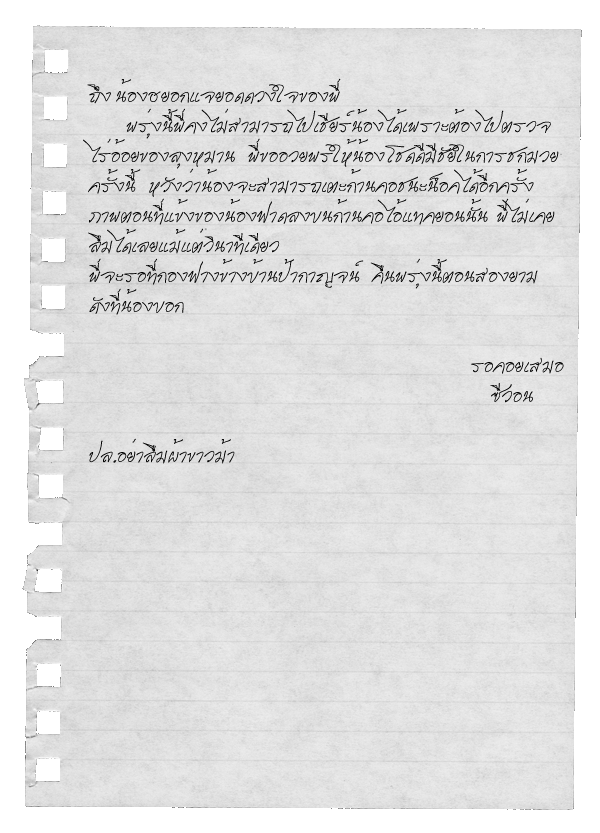 ถึง น้องชยอกแจยอดดวงใจของพี่
พรุ่งนี้พี่คงไม่สามารถไปเชียร์น้องได้เพราะต้องไปตรวจ
ไร่อ้อยของลุงหูมาน พี่ขออวยพรให้น้องโชคดีมีชัยในการชกมวย
ครั้งนี้ หวังว่าน้องจะสามารถเตะก้านคอชนะน็อคได้อีกครั้ง
ภาพตอนที่แข้งของน้องฟาดลงบนก้านคอไอ้แทคยอนนั้น พี่ไม่เคย
ลืมได้เลยแม้แต่วินาทีเดียว
พี่จะรอที่กองฟางข้างบ้านป้ากาญจน์ คืนพรุ่งนี้ตอนสองยาม
ดังที่น้องบอก
รอคอยเสมอ
ชีวอน
ปล.อย่าลืมผ้าขาวม้า